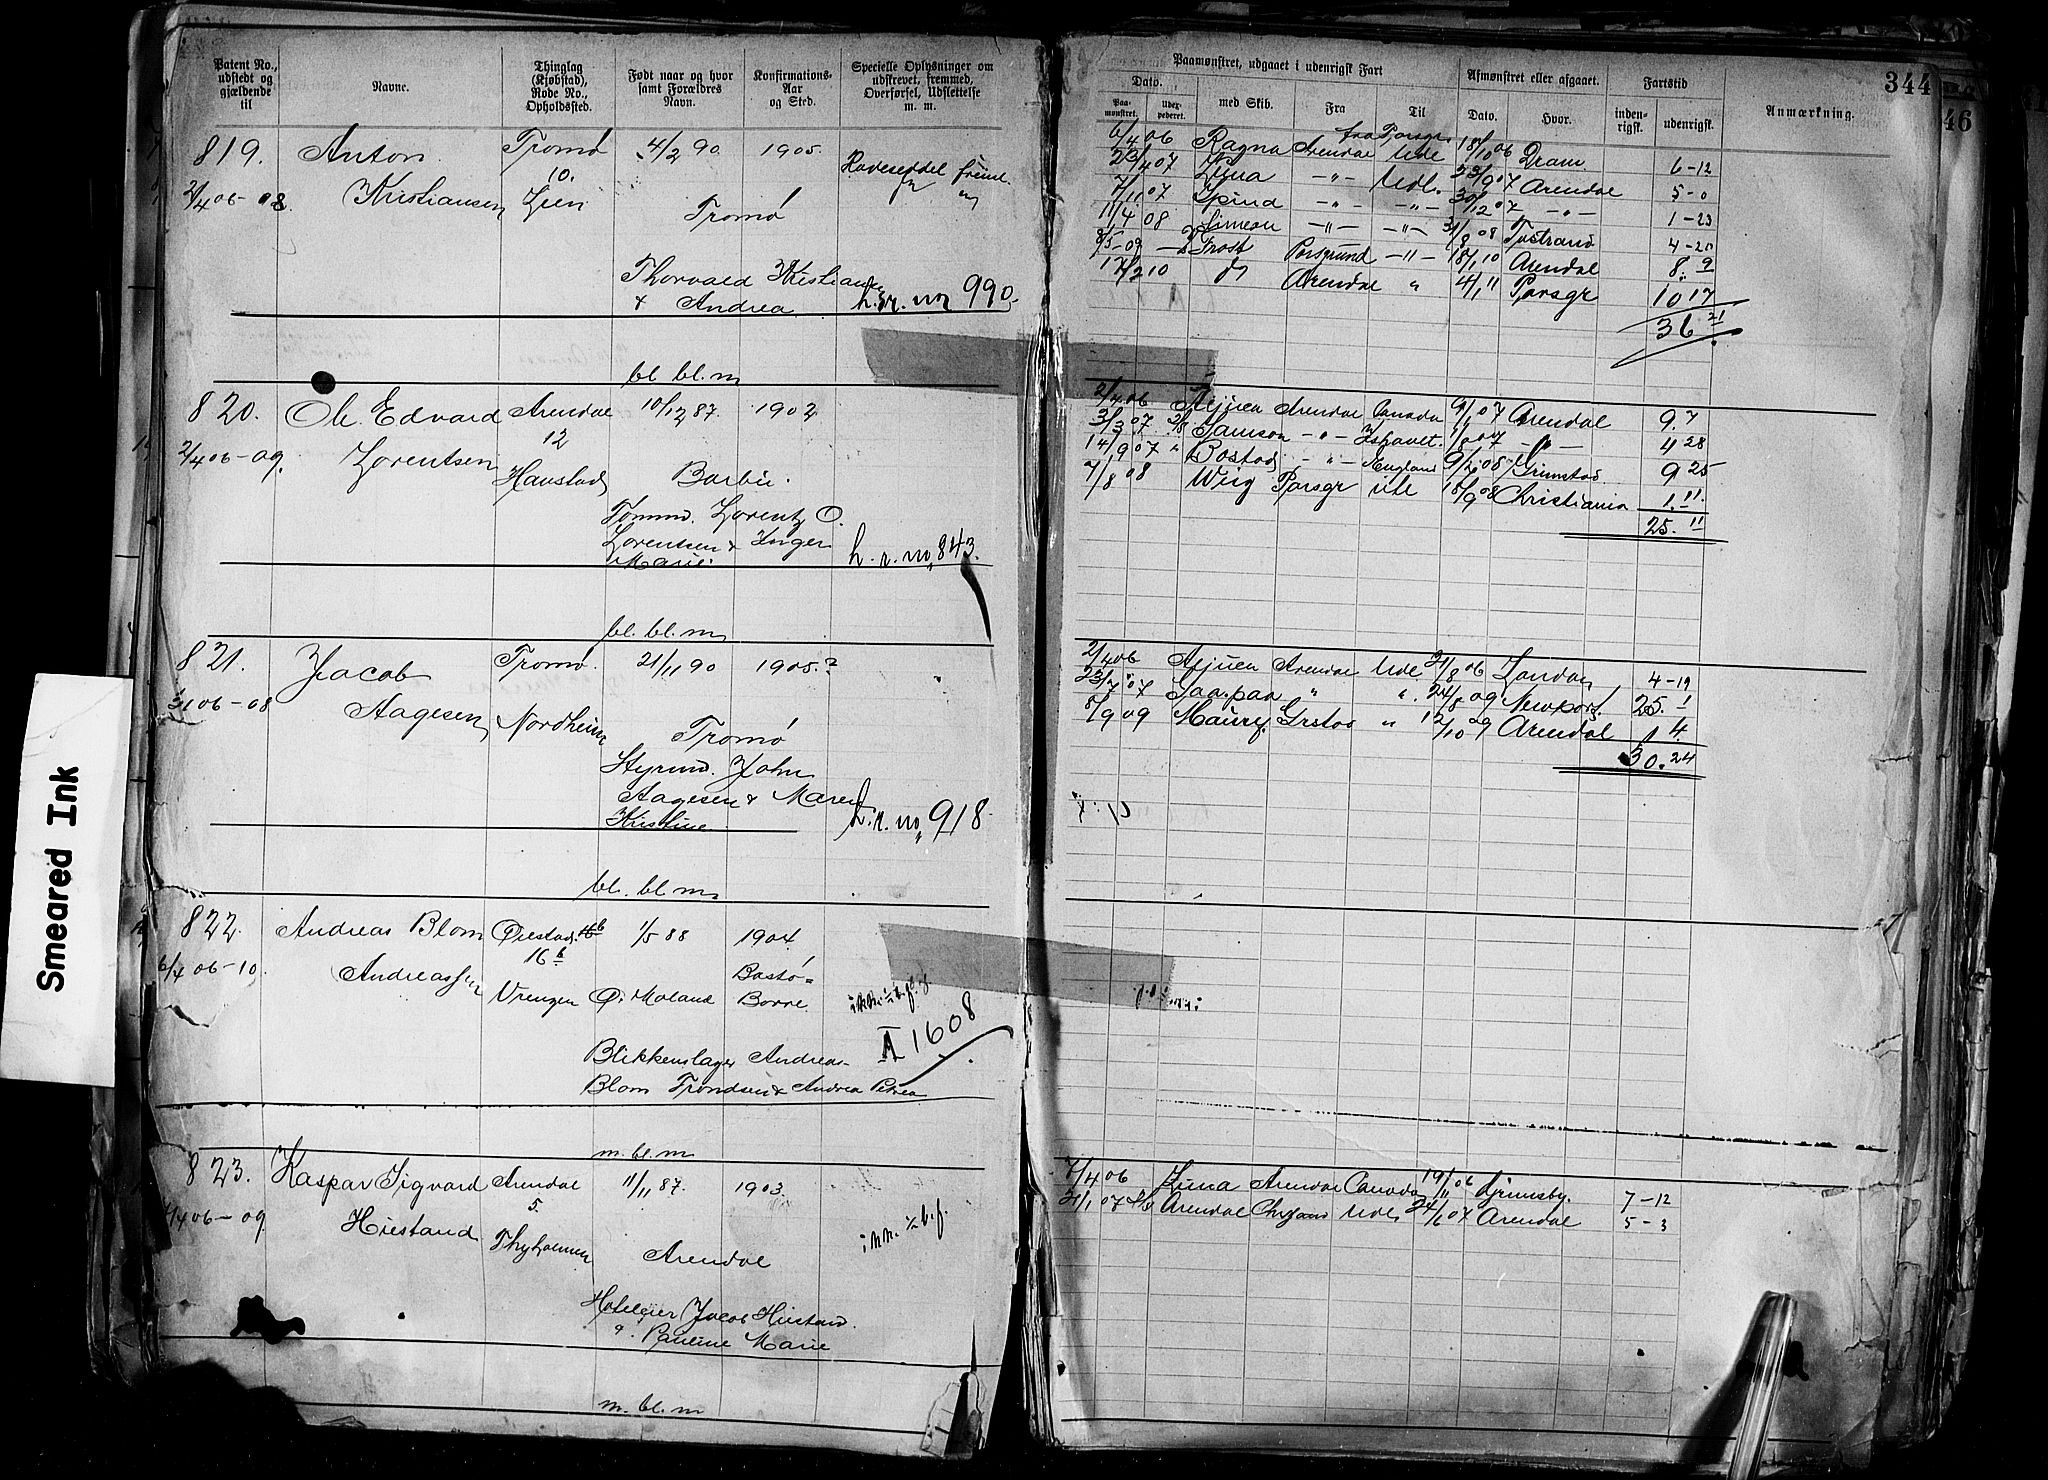 Patent No., udstedt og gjældende til
Navne.
Thinglag (Kjøbstad), Rode No., Opholdssted.
Født naar og hvor samt Forældres Navn.
Konfirmations- Aar og Sted.
Specielle Oplysninger om udskrevet, fremmed, Overførsel, Udslettelse m. m.
819. Anton Tromø 4/2 90 1905
10.
2/4 06-08 Kristiansen Lien Tromø
Thorvald Kristiansen
& Andrea h.r. no 990.
bl. bl. m
820. Ole Edvard Arendal 10/12 87. 1902
12
2/4 06-09. Lorentsen Havstad Barbu.
Tømmd. Lorentz O.
Lorentsen & Inger
Marie. h. r. no 843.
bl. bl. m
821. Jacob Tromø. 21/11 90 1905.?
06-08 Aagesen Nordheim Tromø
Styrmd. John
Aagesen & Maren
Kristine h. r. no 918
bl. bl. m
822. Andreas Blom Øiestad. 1/5 88 1904
16 b Bastø-
6/4 06-10. Andreassen Vrengen Ø. Moland Borre.
II 1608
Blikkenslager Andreas
Blom Trondsen & Andrea Petrea
m. bl. m
823. Kaspar Sigvard Arendal 11/11 87. 1903.
5.
06-09 Hiestand Thyholmen Arendal
Jacob Hiestand
Pauline Marie
m. bl. m
Smeared Ink
344
46
Paamønstret, udgaaet i udenrigsk Fart
Afmønstret eller afgaaet.
Fartstid
Anmærkning.
Dato.
Paa-mønstret.
med Skib.
Fra
Til
Dato.
Hvor.
inden-rigsk.
udenrigsk.
fra Porsgr
6/4 06 Ragna Arendal Ude 18/10 06 Dram. 6-12
23/4 07 Luna -"- Udl. 23/9 07 Arendal 5-0
7/11 07 -"- -"- 30/12 07 -"- 1-23
11/4 08 Simeon -"- -"- 31/8 08 4-20
8/5-09 Frost Porsgrund -"- 18/1 10 Arendal 8. 9
17/2 10 Arendal " 4/1 11 Porsgr 10 17
36. 21
2/4 06 Arendal Canada 9/1 07 Arendal 9. 7
3/3 07 Samson -"- Ishavet. -"- 4 28
14/9 07 Bostad -"- England Grimstad 9 25
7/8 08 Porsgr ute 18/9 08 Christiania 1. 11
25. 11
2/4 06 Arendal Ude 21/8 06 London 4-19
23/7 07 " " 24/8 09. Newport. 25. 1
8/9 09 " 12/10 09 Arendal 1 4.
30. 24
7/4 06 Luna Arendal Canada 19/11 06 Grimsby. 7-12
21/1 07 Arendal Ude 24/6 07 Arendal 5-3